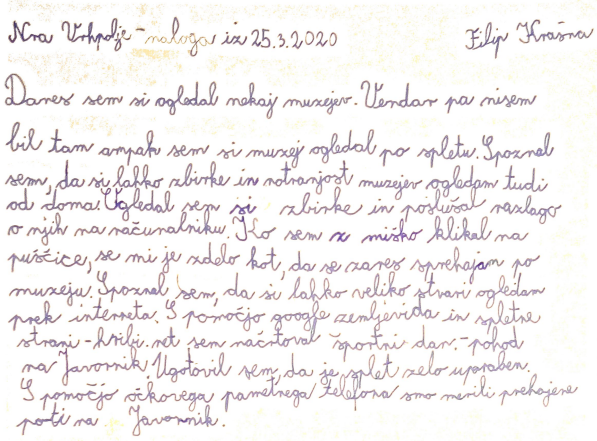 Nra Vrhpolje - naloga iz 25.3.2020 Filip Krašna
Danes sem si ogledal nekaj muzejev. Vendar pa nisem
bil tam ampak sem si muzej ogledal po spletu. Spoznal
sem, da si lahko zbirke in notranjost muzejev ogledam tudi
od doma. Ogledal sem si zbirke in poslušal razlago
o njih na računalniku. Ko sem z miško klikal na
puščice, se mi je zdelo kot, da se zares sprehajam po
muzeju. Spoznal sem, da si lahko veliko stvari ogledam
prek interneta. S pomočjo google zemljevida in spletne
strani - hribi.net sem načrtoval športni dan - pohod
na Javornik. Ugotovil sem, da je splet zelo uporaben.
S pomočjo očkovega pametnega telefona smo merili prehojene
poti na Javornik.